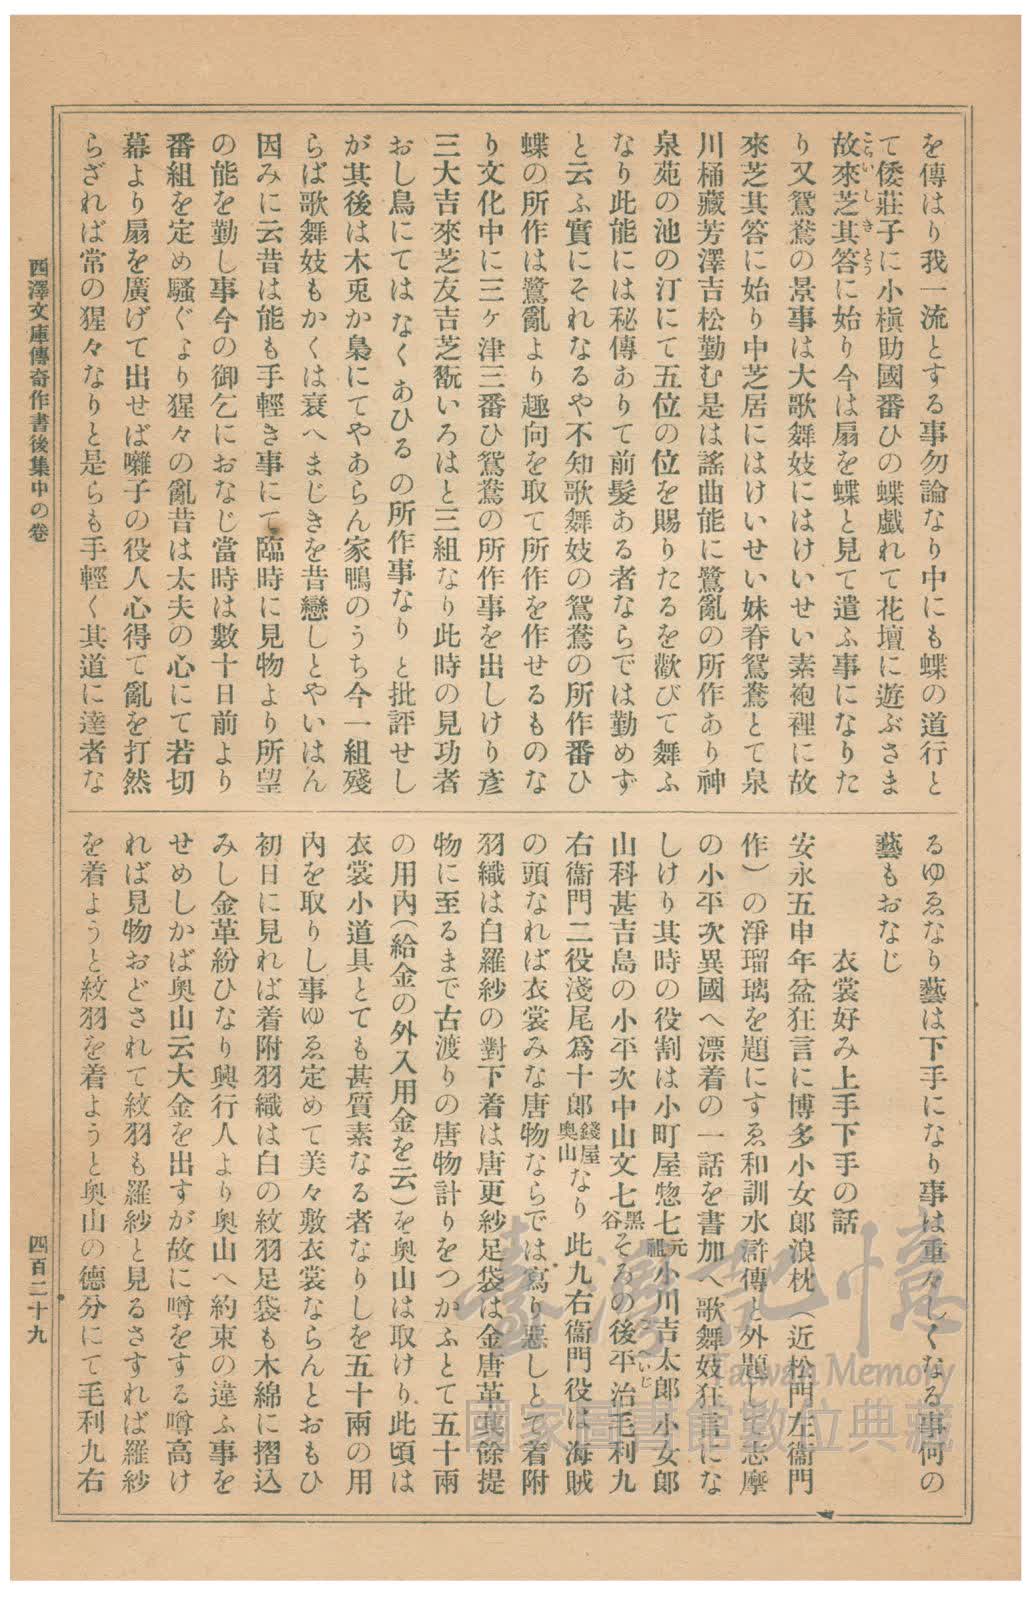 を傳はり我一流とする事勿論なり中にも蝶の道行と
て倭莊子に小槇助國番ひの蝶戯れて花壇に遊ぶさま
故來芝其答に始り今は扇を蝶と見て遣ふ事になりた
り又鴛鴦の景事は大歌舞妓にはけいせい素袍裡に故
來芝其答に始り中芝居にはけいせい妹脊鴛鴦とて泉
川桶藏芳澤吉松勤む是は謠曲能に鷺亂の所作あり神
泉苑の池の汀にて五位の位を賜りたるを歡びて舞ふ
なり此能には秘傳ありて前髮ある者ならでは勤めず
と云ふ實にそれなるや不知歌舞妓の鴛鴦の所作番ひ
蝶の所作は鷺亂より趣向を取て所作を作せるものな
り文化中に三ヶ津三番ひ鴛鴦の所作事を出しけり彦
三大吉來芝友吉芝翫いろはと三組なり此時の見功者
おし鳥にてはなくあひるの所作事なりと批評せし
が其後は木兎か梟にてやあらん家鴨のうち今一組殘
らば歌舞妓もかくは衰へまじきを昔戀しとやいはん
因みに云昔は能も手輕き事にて臨時に見物より所望
の能を勤し事今の御乞におなじ當時は數十日前より
番組を定め騷ぐより猩々の亂昔は太夫の心にて若切
幕より扇を廣げて出せば囃子の役人心得て亂を打然
らざれば常の猩々なりと是らも手輕く其道に達者な
るゆゑなり藝は下手になり事は重々しくなる事何の
藝もおなじ
衣裳好み上手下手の話
安永五申年盆狂言に博多小女郎浪枕（近松門左衞門
作）の淨瑠璃を題にすゑ和訓水滸傳と外題して志摩
の小平次異國へ漂着の一話を書加へ歌舞妓狂言にな
しけり其時の役割は小町屋惣七元祖小川吉太郎小女郎
山科甚吉島の小平次中山文七黑谷そろの後平治毛利九
右衞門二役淺尾爲十郎錢屋奥山なり此九右衞門役は海賊
の頭なれば衣裳みな唐物ならでは寫り惡しとて着附
羽織は白羅紗の對下着は唐更紗足袋は金唐革菓餘提
物に至るまで古渡りの唐物計りをつかふとて五十兩
の用内（給金の外入用金を云）を奥山は取けり此頃は
衣裳小道具とても甚質素なる者なりしを五十兩の用
内を取りし事ゆゑ定めて美々敷衣裳ならんとおもひ
初日に見れば着附羽織は白の紋羽足袋も木綿に摺込
みし金革紛ひなり興行人より奥山へ約束の違ふ事を
せめしかば奥山云大金を出すが故に噂をする噂高け
れば見物おどされて紋羽も羅紗と見るさすれば羅紗
を着ようと紋羽を着ようと奥山の德分にて毛利九右
西澤文庫傳奇作書後集中の卷
四百二十九
臺灣記憶
Taiwan Memory
國家圖書館數位典藏